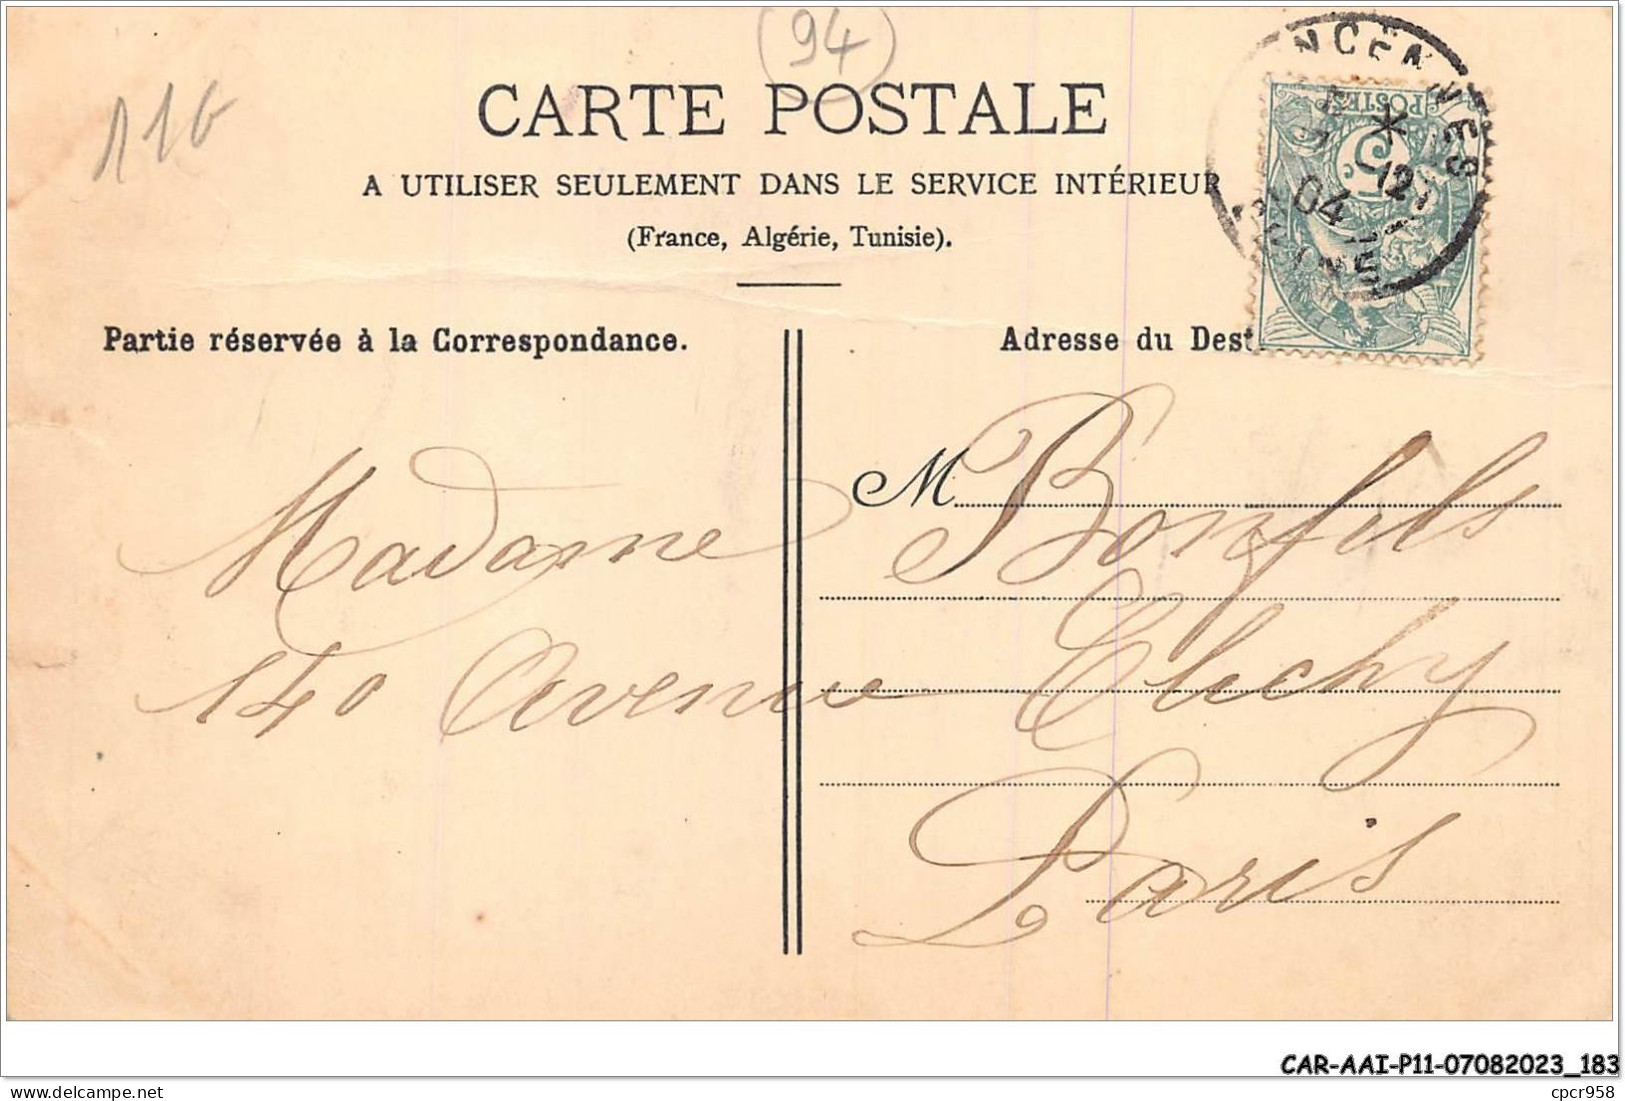 (94)
116
CARTE POSTALE
A UTILISER SEULEMENT DANS LE SERVICE INTÉRIEUR
(France, Algérie, Tunisie).
Partie réservée à la Correspondance.
Adresse du Dest
POSTES
5
NCENNES
12
04
SEINE
M Bonfils
Madame
140 Avenue Clichy
Paris
CAR-AAI-P11-07082023_183
cpcr958